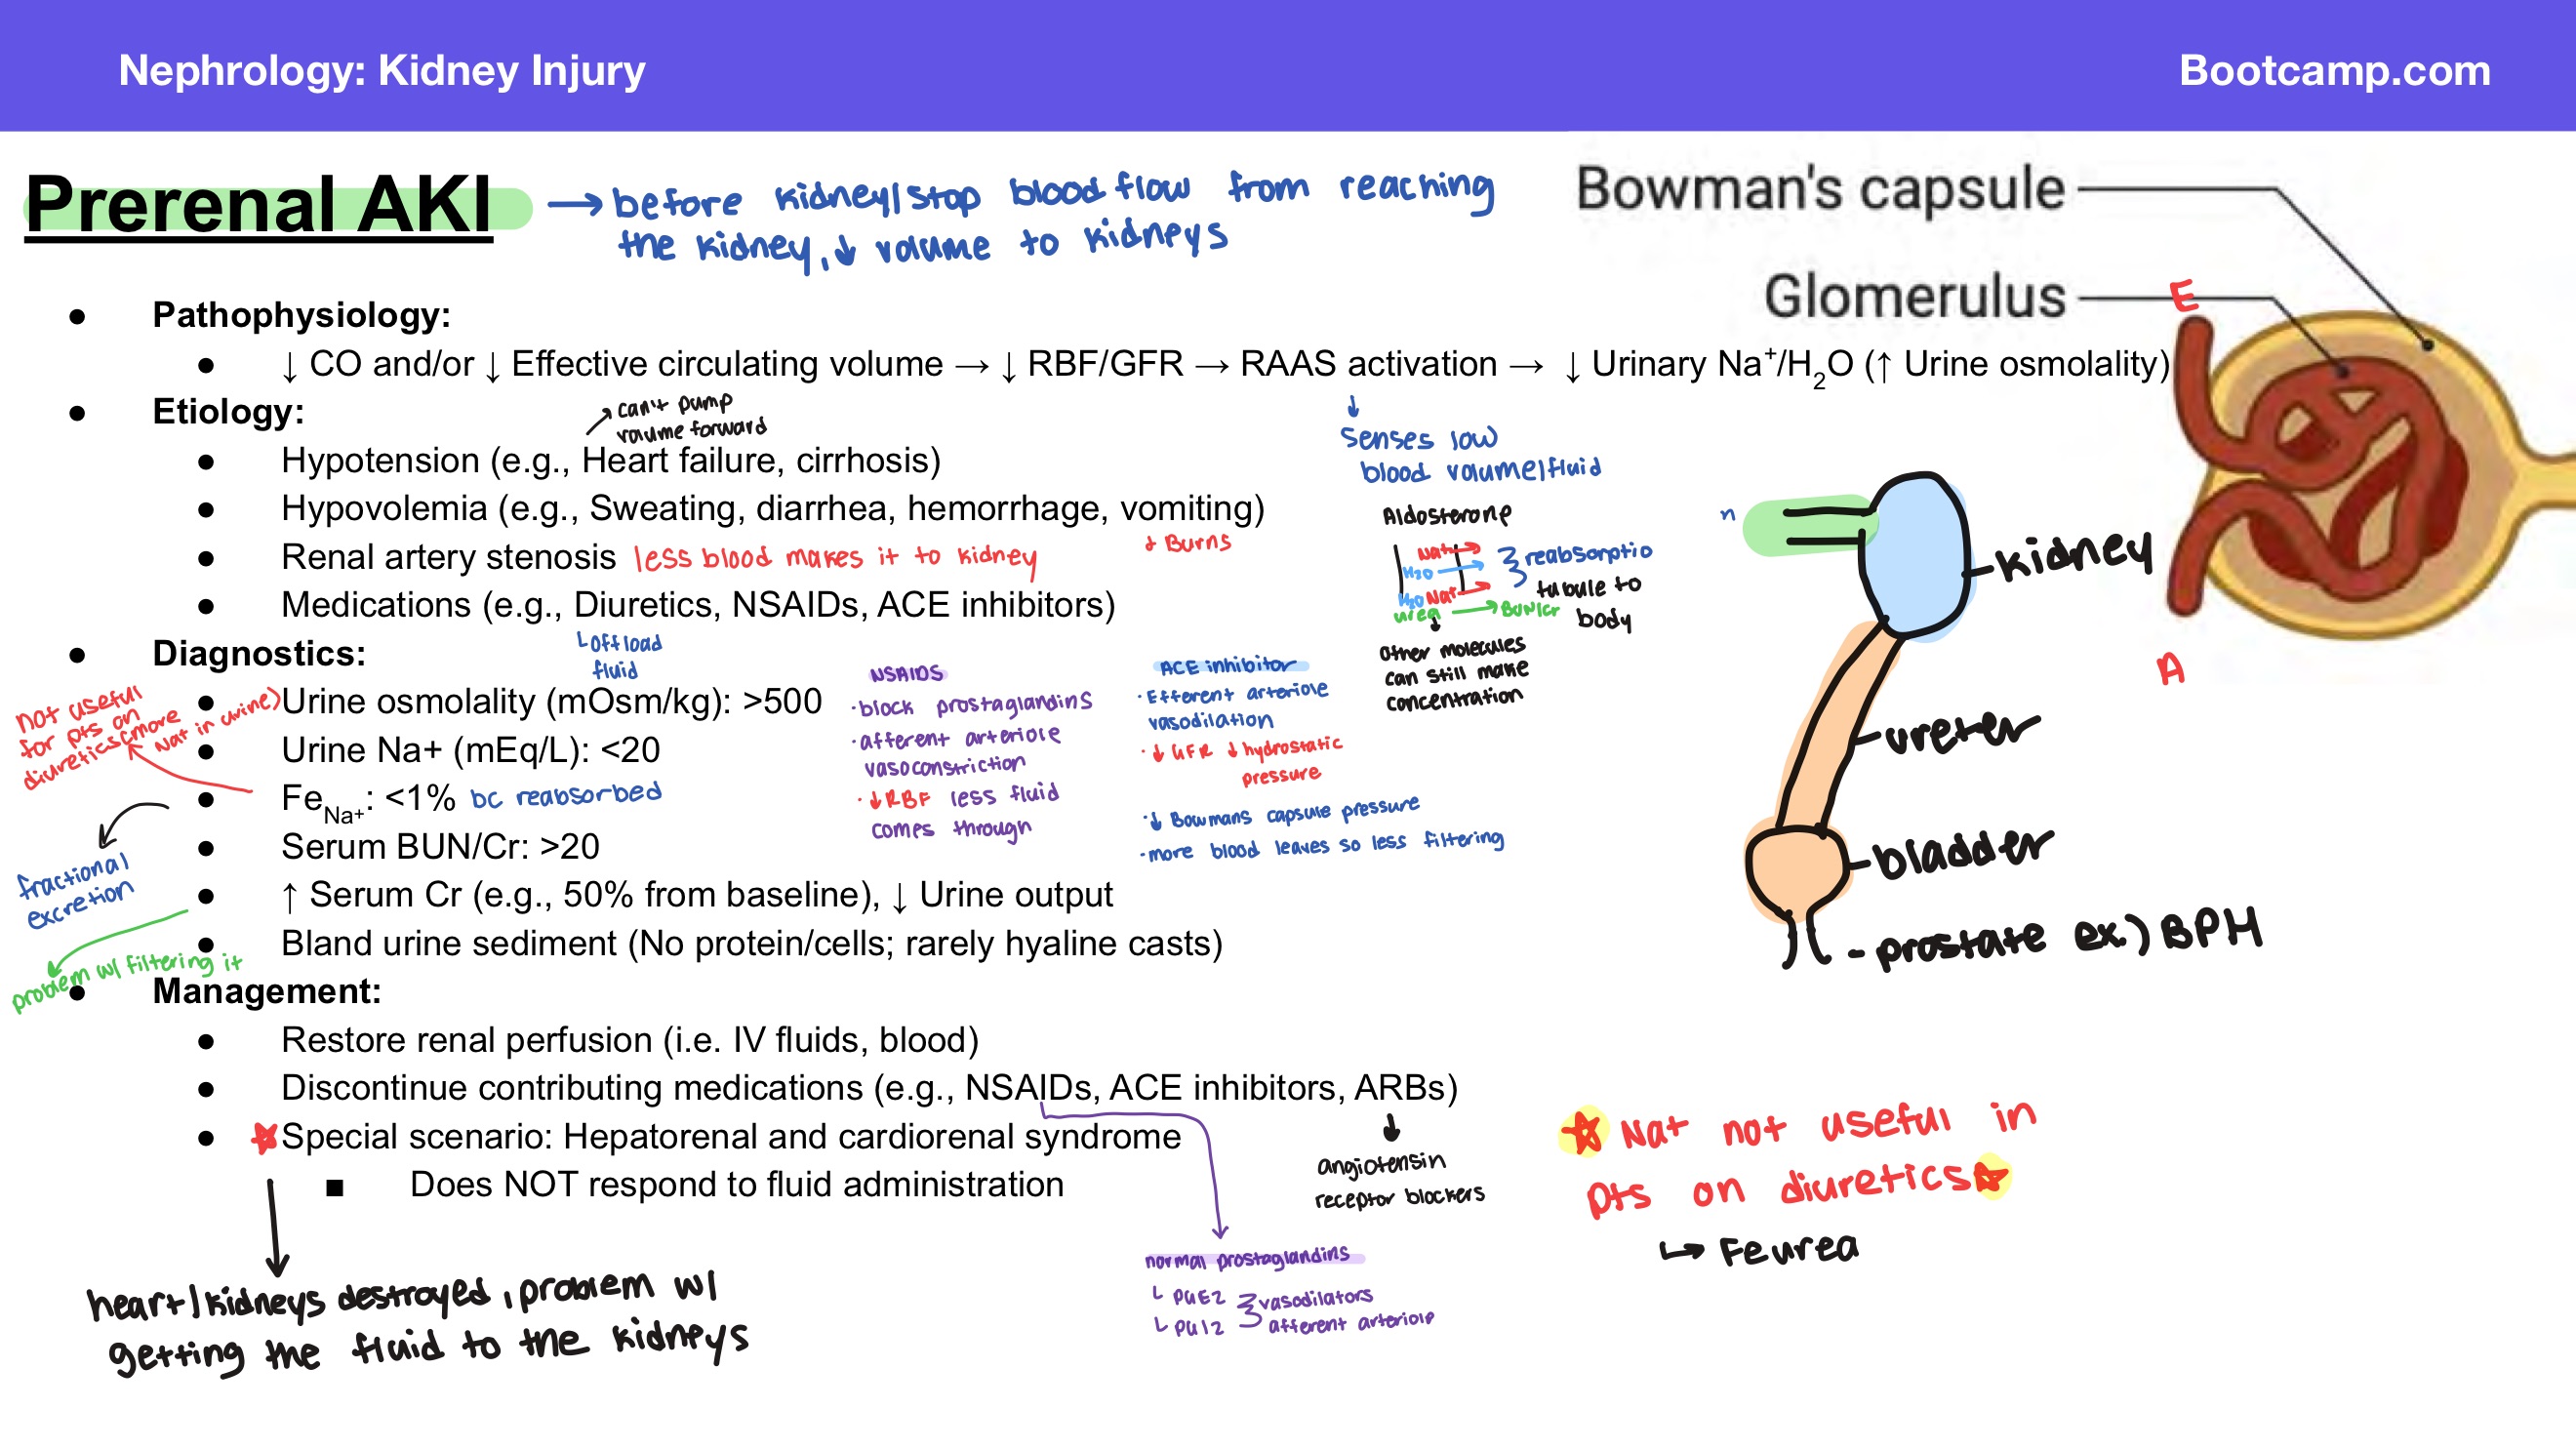 Nephrology: Kidney Injury
Bootcamp.com
Prerenal AKI
→ before kidney/stop blood flow from reaching
the kidney, ↓ volume to kidneys
Bowman's capsule
Glomerulus
E
A
● Pathophysiology:
● ↓ CO and/or ↓ Effective circulating volume → ↓ RBF/GFR → RAAS activation → ↓ Urinary Na+/H2O (↑ Urine osmolality)
↓
senses low
blood volume/fluid
● Etiology:
can't pump
volume forward
● Hypotension (e.g., Heart failure, cirrhosis)
● Hypovolemia (e.g., Sweating, diarrhea, hemorrhage, vomiting)
+ Burns
● Renal artery stenosis
less blood makes it to kidney
● Medications (e.g., Diuretics, NSAIDs, ACE inhibitors)
offload
fluid
Aldosterone
Na+ →
H2O →
H2O Na+ →
urea → BUN/Cr
reabsorptio
n
tubule to
body
other molecules
can still make
concentration
● Diagnostics:
● Urine osmolality (mOsm/kg): >500
● Urine Na+ (mEq/L): <20
● FeNa+: <1%
bc reabsorbed
● Serum BUN/Cr: >20
● ↑ Serum Cr (e.g., 50% from baseline), ↓ Urine output
● Bland urine sediment (No protein/cells; rarely hyaline casts)
not useful
for pts on
diuretics (more
Na+ in urine)
fractional
excretion
problem w/ filtering it
NSAIDS
· block prostaglandins
· afferent arteriole
vasoconstriction
· ↓ RBF less fluid
comes through
ACE inhibitor
· Efferent arteriole
vasodilation
· ↓ GFR ↓ hydrostatic
pressure
· ↓ Bowmans capsule pressure
· more blood leaves so less filtering
kidney
ureter
bladder
- prostate ex.) BPH
● Management:
● Restore renal perfusion (i.e. IV fluids, blood)
● Discontinue contributing medications (e.g., NSAIDs, ACE inhibitors, ARBs)
↓
angiotensin
receptor blockers
● Special scenario: Hepatorenal and cardiorenal syndrome
■ Does NOT respond to fluid administration
heart/kidneys destroyed, problem w/
getting the fluid to the kidneys
normal prostaglandins
PGE2
PGI2
vasodilators
afferent arteriole
Na+ not useful in
pts on diuretics
↳ Feurea